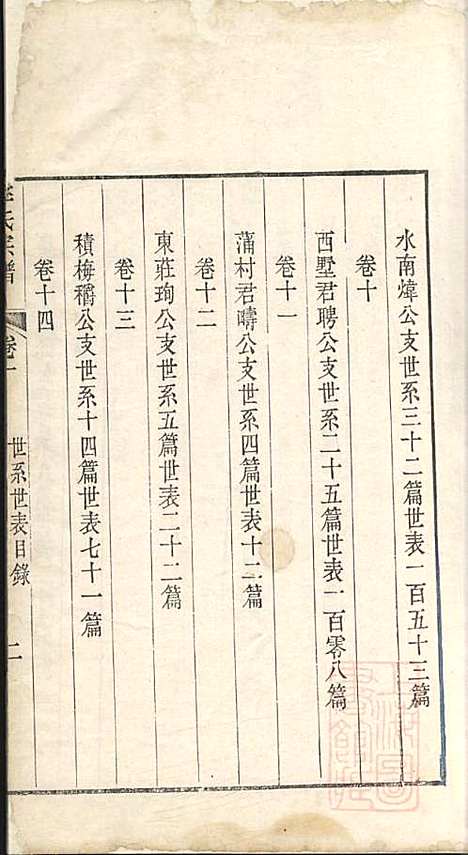 水南煒公支世系三十二篇世表一百五十三篇
卷十
西墅君聘公支世系二十五篇世表一百零八篇
卷十一
蒲村君疇公支世系四篇世表十二篇
卷十二
東莊珣公支世系五篇世表二十二篇
卷十三
積梅穧公支世系十四篇世表七十一篇
卷十四
氏宗譜 卷一 世系世表目錄 二